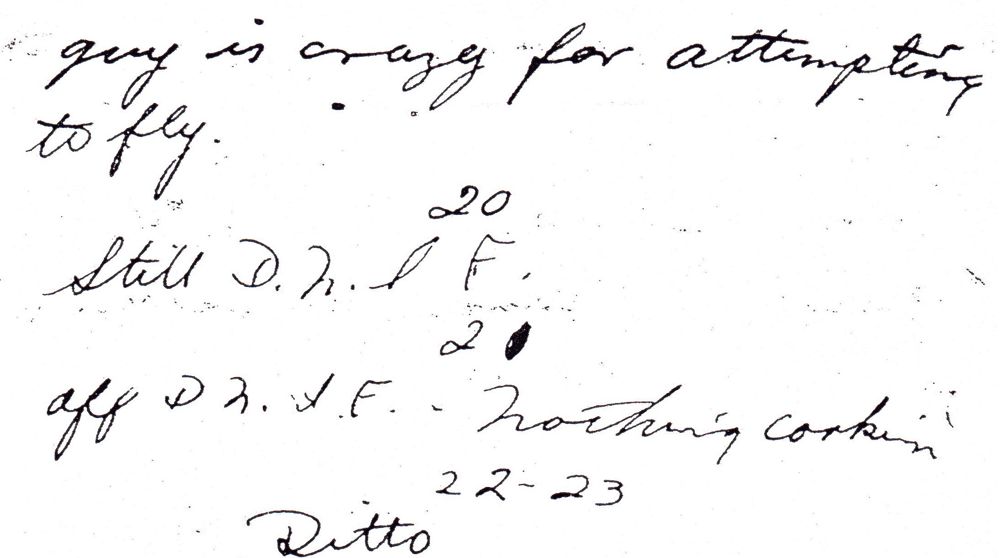 guy is crazy for attempting
to fly.
20
Still D.N.I F.
21
off D N. I.F. - Nothing cookin
22-23
Ditto